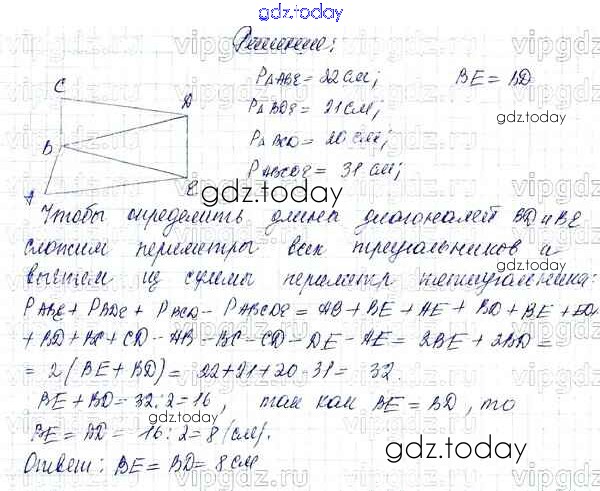 gdz.today
Решение:
C
D
B
A
E
P△ABE = 22 см; BE = BD
P△BDE = 21 см; gdz.today
P△BCD = 20 см;
PABCDE = 31 см;
gdz.today
Чтобы определить длины диагоналей BD и BE
сложим периметры всех треугольников и
вычтем из суммы периметр пятиугольника:
PABE + PBDE + PBCD - PABCDE = AB + BE + AE + BD + BE + ED +
+ BD + BC + CD - AB - BC - CD - DE - AE = 2BE + 2BD =
= 2(BE + BD) = 22+21+20-31= 32.
BE + BD = 32:2=16, так как BE = BD, то
BE = BD = 16:2=8 (см).
gdz.today
Ответ: BE = BD = 8 см